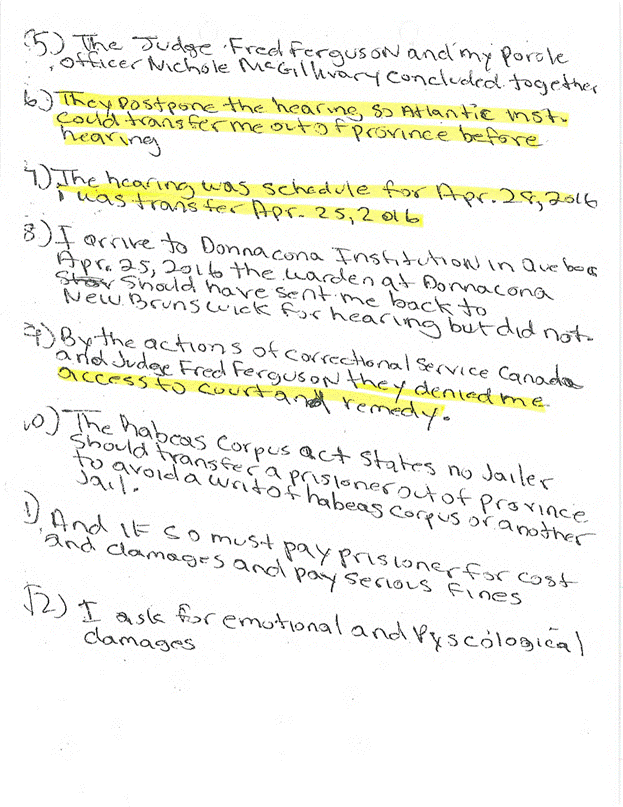 (5.) The Judge Fred Ferguson and my Porole
officer Nichole McGillivary concluded together
6.) They postpone the hearing so Atlantic inst.
could transfer me out of province before
hearing
7.) The hearing was schedule for Apr. 28, 2016
I was transfer Apr. 25, 2016
8.) I arrive to Donnacona Institution in Quebec
Apr. 25, 2016 the warden at Donnacona
should have sent me back to
New Brunswick for hearing but did not.
9.) By the actions of correctional Service Canada
and Judge Fred Ferguson they denied me
access to court and remedy.
10.) The habeas corpus act states no Jailer
should transfer a prisioner out of province
to avoid a writ of habeas corpus or another
Jail.
11) And if so must pay prisioner for cost
and damages and pay serious fines
12) I ask for emotional and Pyscological
damages